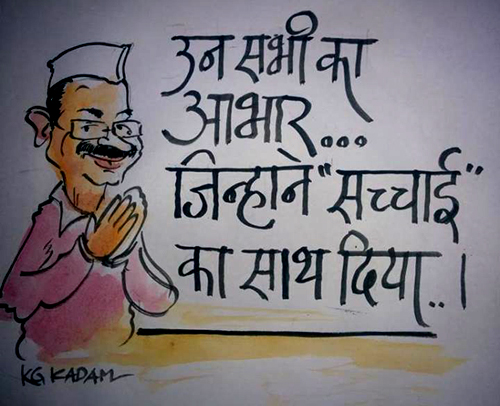 उन सभी का
आभार...
जिन्हाने "सच्चाई"
का साथ दिया..।
KG KADAM